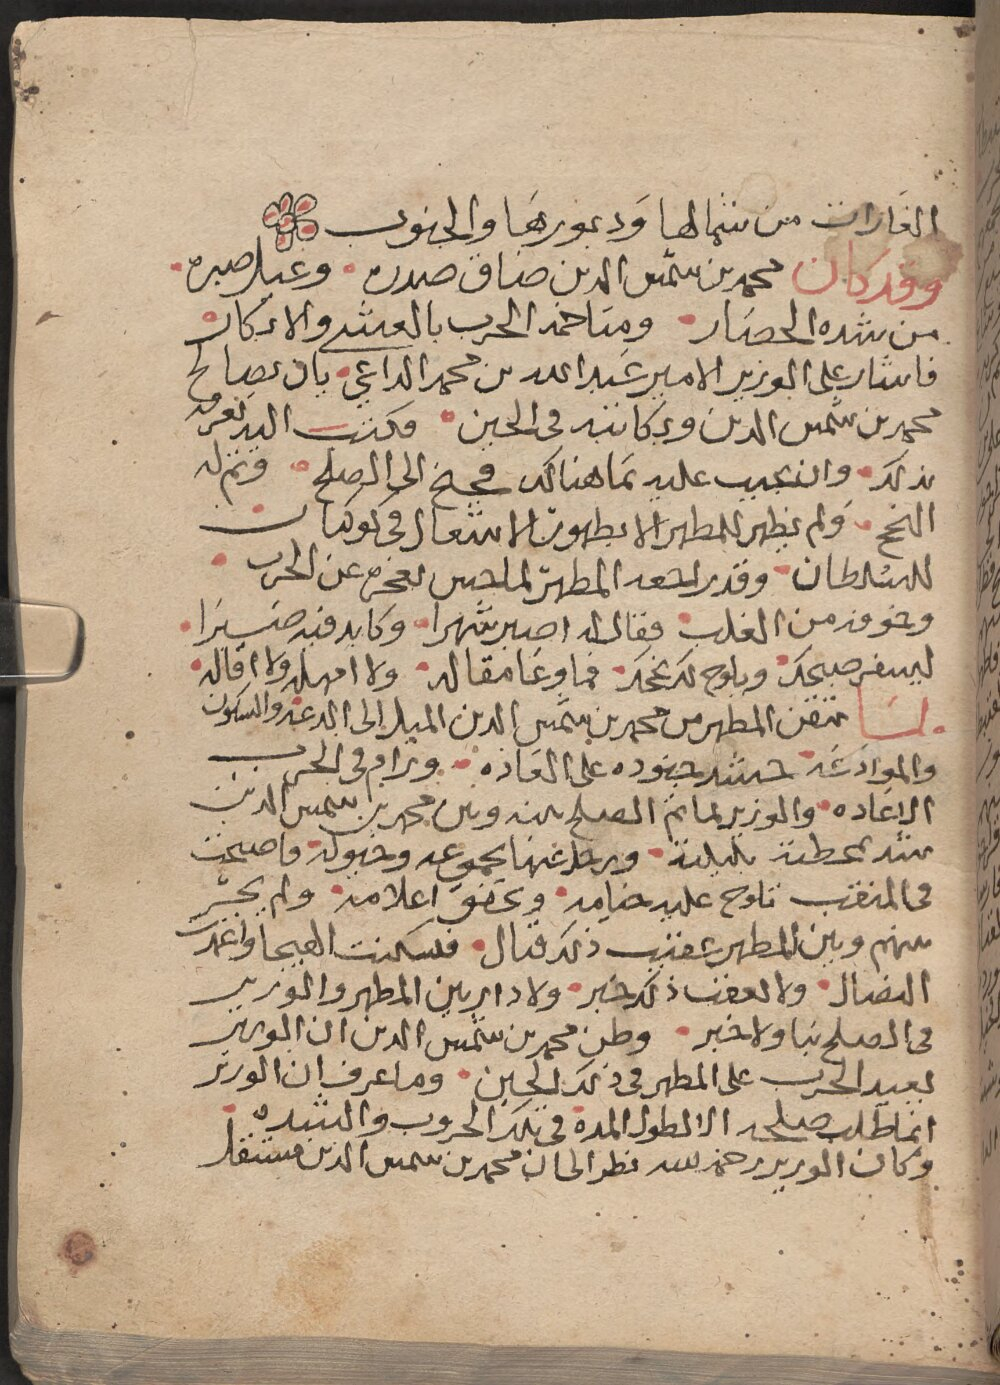 الغارات من شمالها ودبورها والجنوب
وقد كان محمد بن شمس الدين ضاق صدره وعيل صبره
من شده الحصار ومتاخمة الحرب بالعشي والابكار
فاشار على الوزير الامير عبد الله بن محمد الداعي بان يصالح
محمد بن شمس الدين ومكاتبه في الحين فكتب اليه يعرفه
بذلك وان يجيب عليه بما هنالك فجنح الى الصلح وتم له
النجح ولم يظهر للمطهر الا بظهور الاشعال في كوكبان
للسلطان وقد راجعه المطهر لما احس بعجزه عن الحرب
وخوفه من الغلب فقال له اصبر شهرا وكابد فيه صبرا
ليسفر صبحك ويلوح لك نجحك فما وعا مقاله ولا امهله ولا اقاله
لما تيقن المطهر من محمد بن شمس الدين الميل الى الدعه والسكون
والموادعه حشد جنوده على العاده ورام في الحرب
الاعاده والوزير لما تم الصلح بينه وبين محمد بن شمس الدين
شد محطته بليلته ورحل عنها بجموعه وخيوله فاصبحت
في المنقب تلوح عليه خيامه وتخفق اعلامه ولم يجر
بينهم وبين المطهر عقيب ذلك قتال فسكنت الهيجا واغمدت
النضال ولا لعقب ذلك خبر ولا دار بين المطهر والوزير
في الصلح نبا ولا خبر وظن محمد بن شمس الدين ان الوزير
يعيد الحرب على المطهر في ذلك الحين وما عرف ان الوزير
انما طلب صلحه الا لطول المدة في تلك الحروب والشده
وكان الوزير رحمه الله نظر الى ان محمد بن شمس الدين مستقل